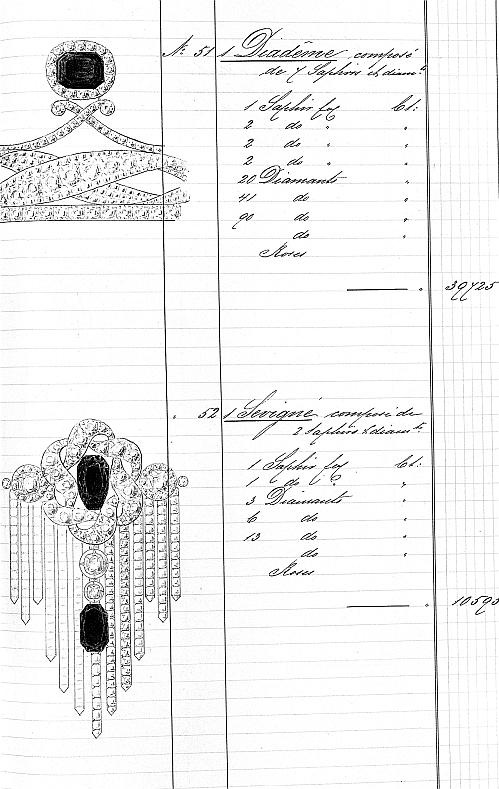 No. 51 1 Diadême composé
de 7 Saphirs et diamts
1 Saphir fcg Ct:
2 do " "
2 do " "
2 do " "
20 Diamants "
41 do "
90 do "
do "
Roses
" 39725
" 52 1 Sévigné composé de
2 Saphirs & diamts
1 Saphir fcg Ct:
1 do " "
3 Diamants "
6 do "
13 do "
do "
Roses
" 10590